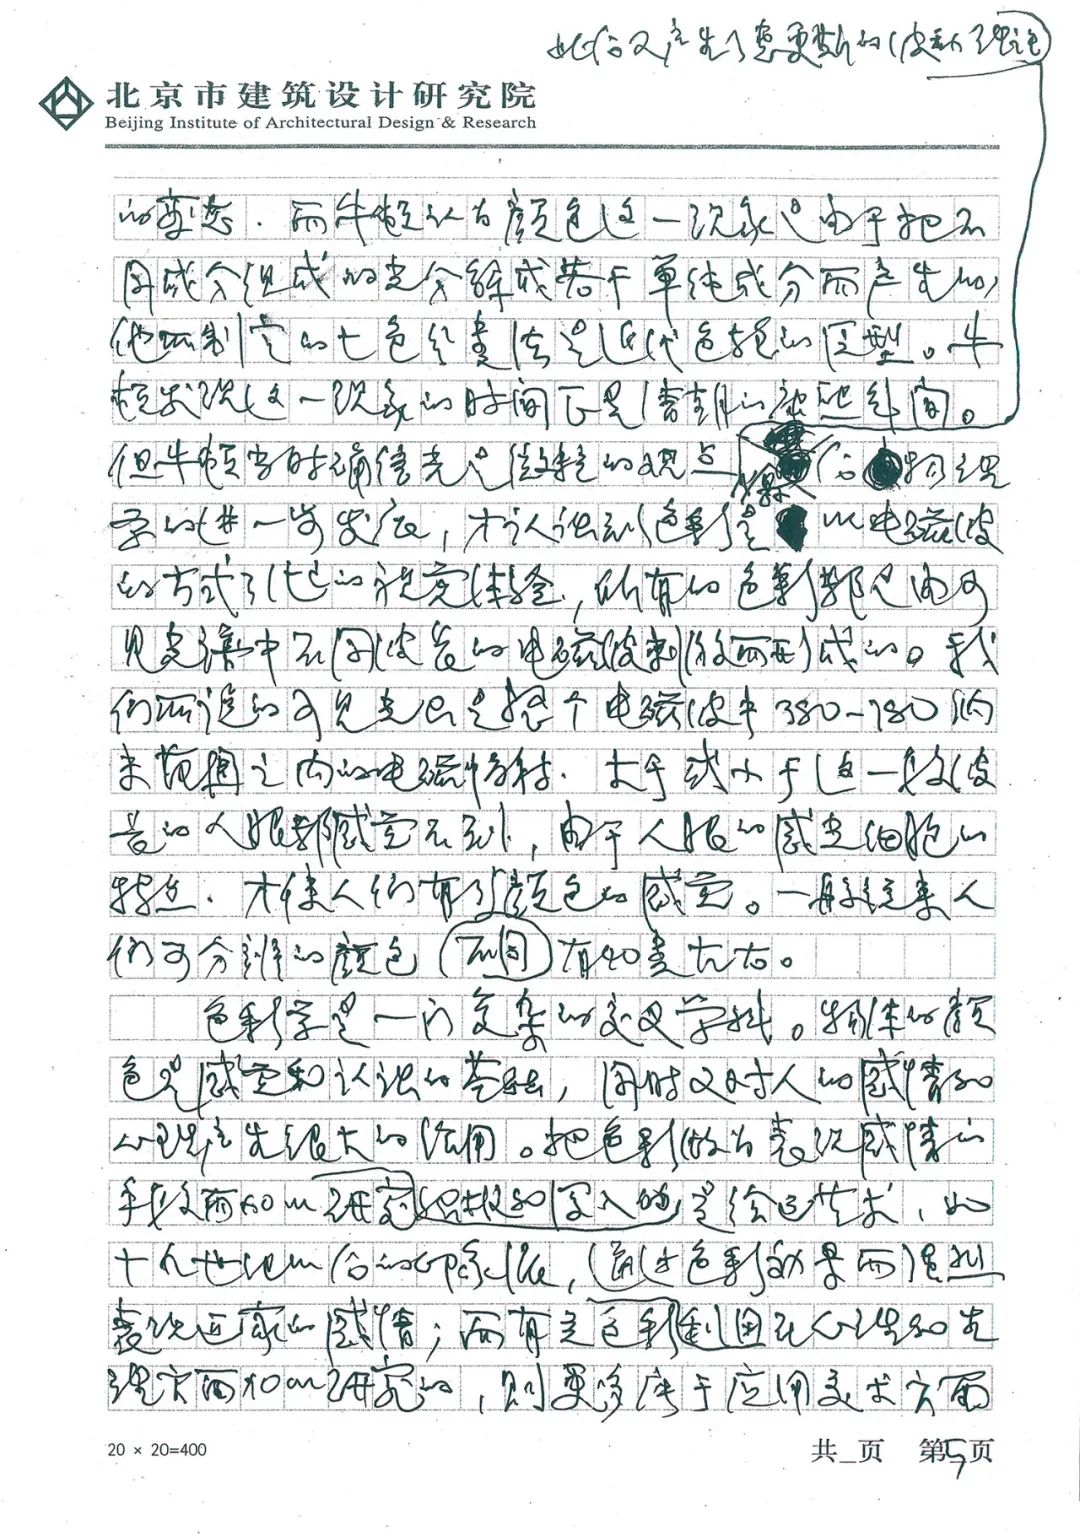 此后又产生了惠更斯的波动理论
北京市建筑设计研究院
Beijing Institute of Architectural Design & Research
的变态．而牛顿认为颜色这一现象是由于把不
同成分组成的光分解成若干单纯成分而产生的，
他所制定的七色分类法是近代色轮的原型。牛
顿发现这一现象的时间正是清朝的康熙年间。
但牛顿当时确信光是微粒的观点 后 物理
学的进一步发展，才认识到色彩是 以电磁波
的方式引起的视觉体验，所有的色彩都是由可
见光谱中不同波长的电磁波刺激而形成的。我
们所说的可见光只是整个电磁波中380-780纳
米范围之内的电磁辐射．大于或小于这一段波
长的人眼都感觉不到，由于人眼的感光细胞的
特点．才使人们有了颜色的感觉。一般说来人
们可分辨的颜色 不同 有40类左右。
色彩学是一门复杂的交叉学科。物体的颜
色是感觉和认识的基础，同时又对人的感情和
心理产生很大的作用。把色彩做为表现感情的
手段而加以研究 和 是绘画艺术，如
十九世纪以后的印象派，通过色彩效果而强烈
表现画家的感情；而有关色彩利用在心理和生
理方面加以研究的，则更多应于应用美术方面
20 × 20=400
共_页 第5页